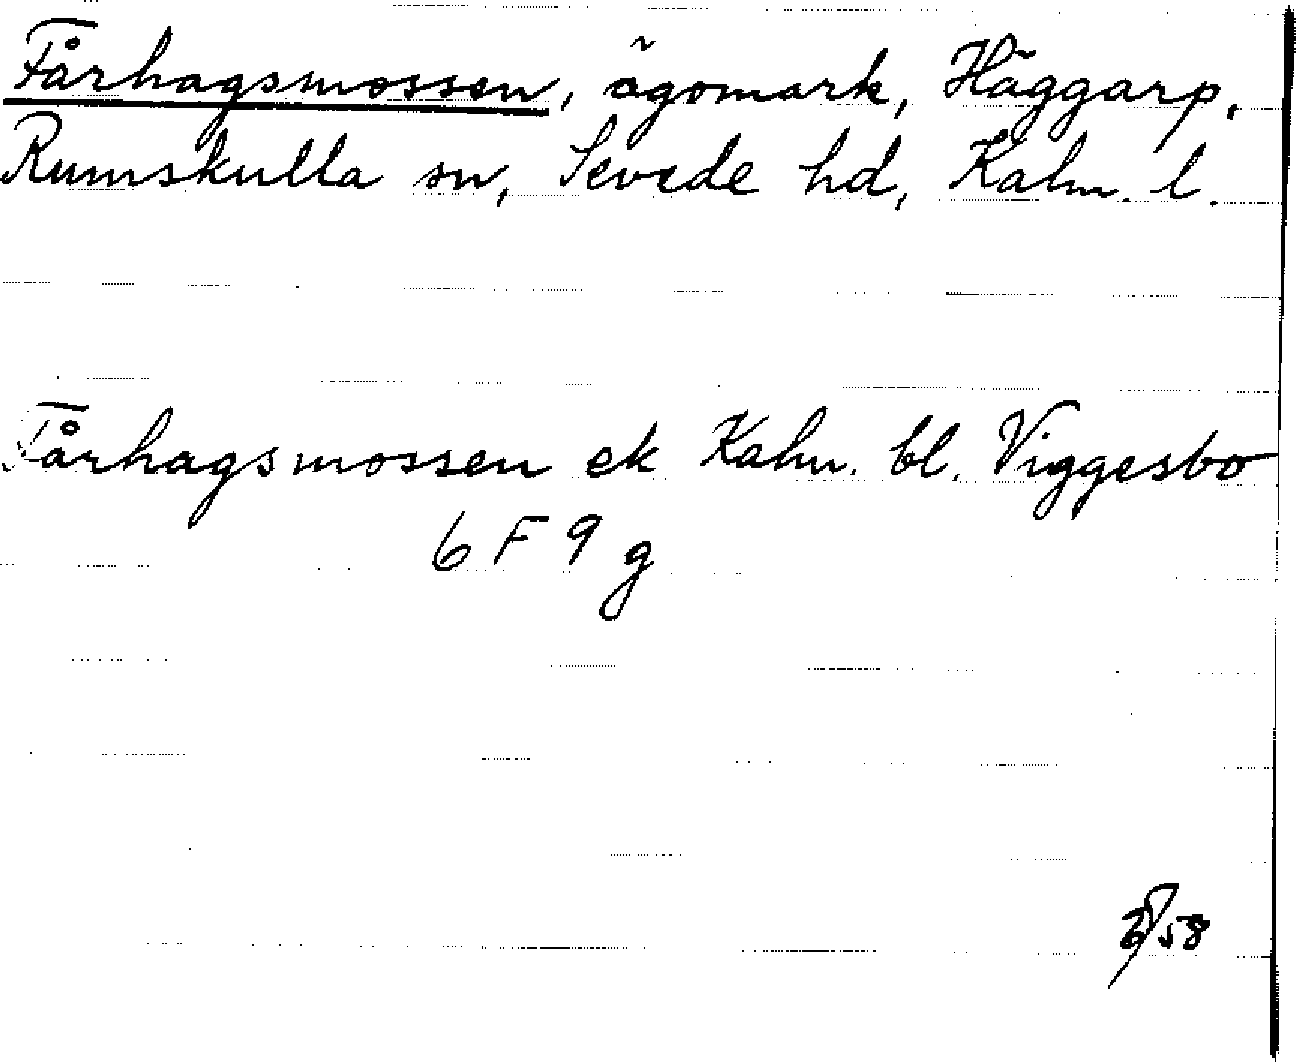 Fårhagsmossen, ägomark, Häggarp,
Rumskulla sn, Sevede hd, Kalm. l.
Fårhagsmossen ek Kalm. bl. Viggesbo
6 F 9 g